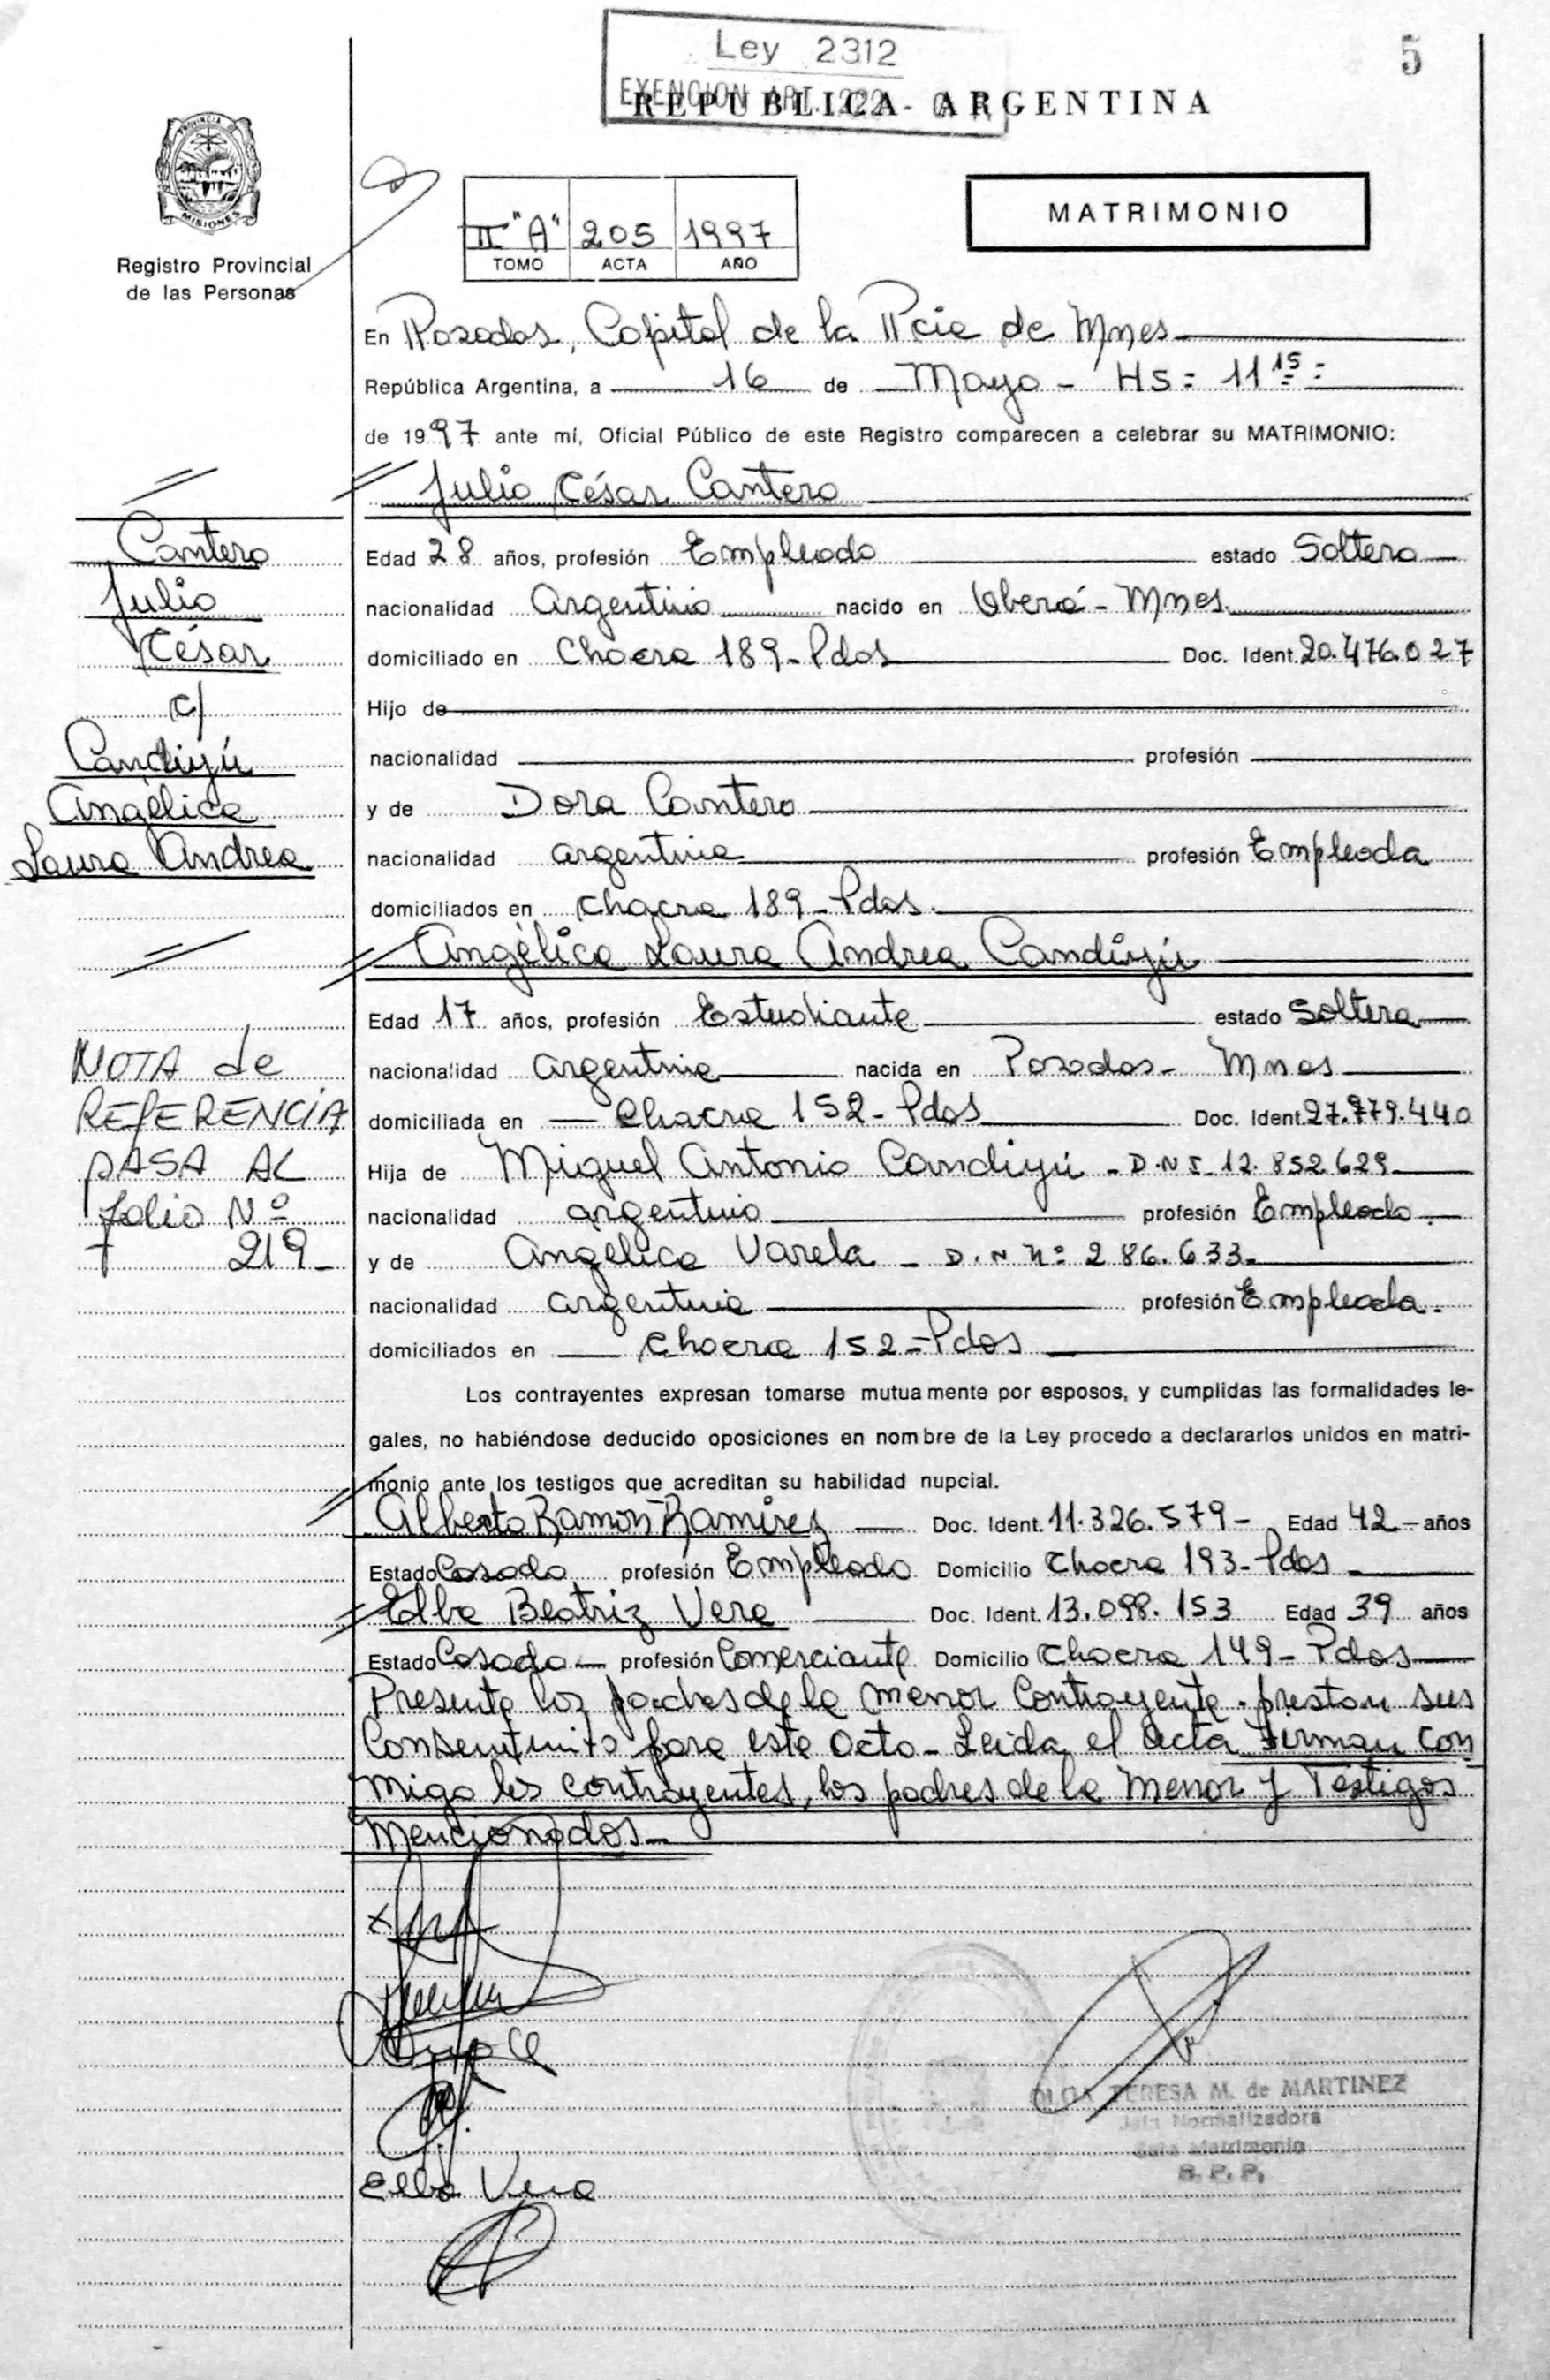 Ley 2312
EXENCION ART. 222 -
5
REPUBLICA ARGENTINA
PROVINCIA DE
MISIONES
Registro Provincial
de las Personas
II "A" 205 1997
TOMO ACTA AÑO
MATRIMONIO
En Posadas, Capital de la Pcia de Mnes
República Argentina, a 16 de Mayo - HS: 11 15
de 1997 ante mí, Oficial Público de este Registro comparecen a celebrar su MATRIMONIO:
Julio César Cantero
Cantero
Julio
César
c/
Candiyú
Angélica
Laura Andrea
Edad 28 años, profesión Empleado estado Soltero
nacionalidad Argentino nacido en Oberá - Mnes.
domiciliado en Chacra 189 - Pdas Doc. Ident. 20.476.027
Hijo de
nacionalidad profesión
y de Dora Cantero
nacionalidad argentina profesión Empleada
domiciliados en Chacra 189 - Pdas.
Angélica Laura Andrea Candiyú
Edad 17 años, profesión Estudiante estado Soltera
nacionalidad argentina nacida en Posadas - Mnes
domiciliada en Chacra 152 - Pdas Doc. Ident. 27.979.440
Hija de Miguel Antonio Candiyú - D.N.I. 12.852.629
nacionalidad argentino profesión Empleado.
y de Angélica Varela - D. N Nº 286.633
nacionalidad argentina profesión Empleada.
domiciliados en Chacra 152 - Pdas
NOTA de
REFERENCIA
PASA AL
folio Nº
219 -
Los contrayentes expresan tomarse mutuamente por esposos, y cumplidas las formalidades le-
gales, no habiéndose deducido oposiciones en nombre de la Ley procedo a declararlos unidos en matri-
monio ante los testigos que acreditan su habilidad nupcial.
Alberto Ramon Ramirez Doc. Ident. 11.326.579 - Edad 42 años
Estado Casado profesión Empleado Domicilio Chacra 193 - Pdas
Elba Beatriz Vera Doc. Ident. 13.098.153 Edad 39 años
Estado Casada profesión Comerciante Domicilio Chacra 149 - Pdas
Presente los padres de la menor Contrayente - prestan sus
Consentimito para este acto - Leida el acta Firman con
migo los contrayentes, los padres de la Menor y Testigos
Mencionados -
Elba Vera
OLGA TERESA M. de MARTINEZ
Jefa Normalizadora
Sala Matrimonio
R. P. P.